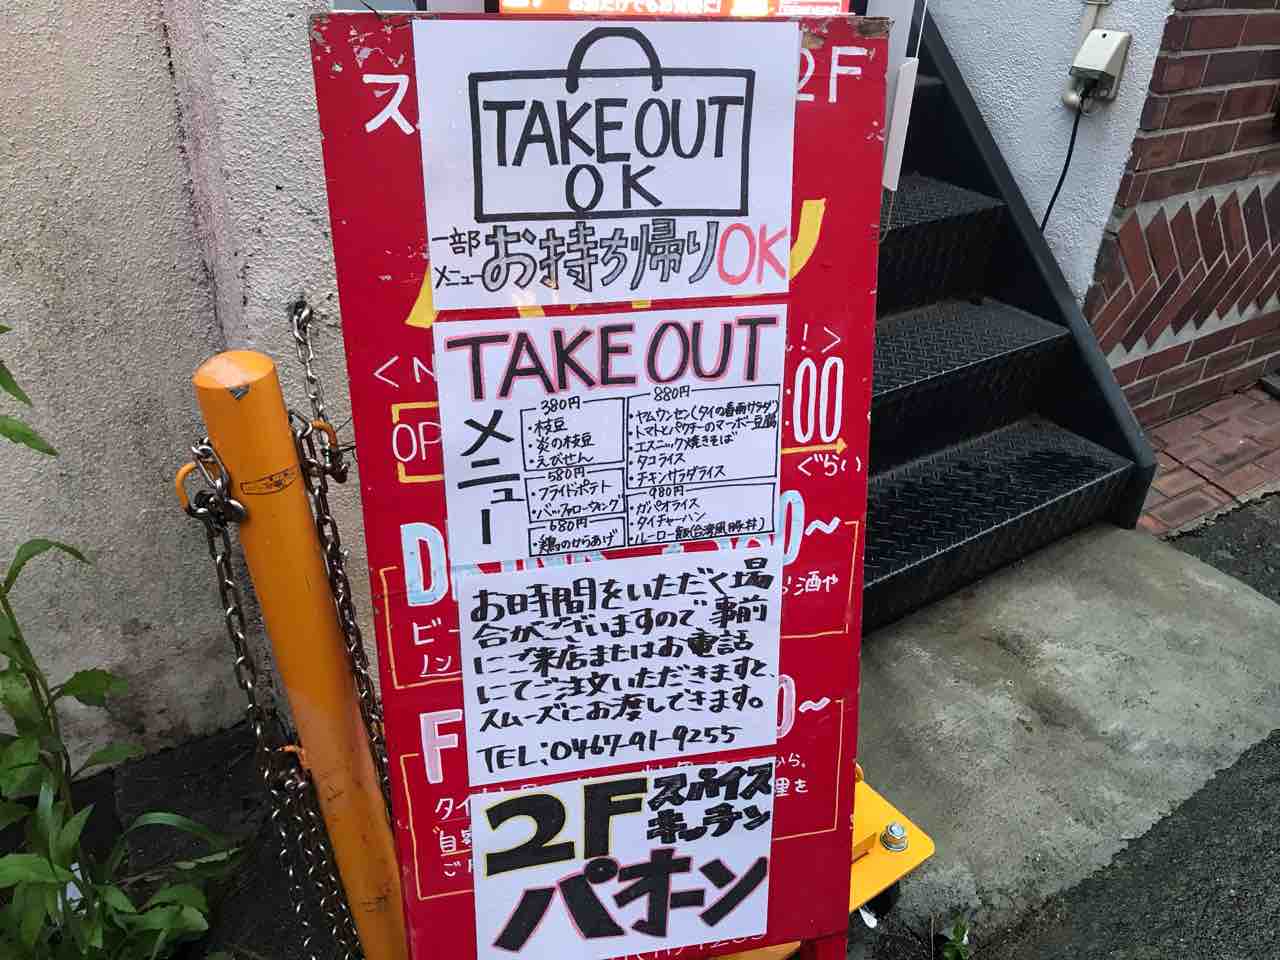 お酒だけでもお気軽に!
ス
2F
TAKE OUT
OK
一部
メニュー
お持ち帰りOK
TAKE OUT
メニュー
380円
・枝豆
・炎の枝豆
・えびせん
580円
・フライドポテト
・バッファローウィング
680円
・鶏のからあげ
880円
・ヤムウンセン(タイの春雨サラダ)
・トマトとパクチーのマーボー豆腐
・エスニック焼きそば
・タコライス
・チキンサラダライス
980円
・ガパオライス
・タイチャーハン
・ルーロー飯(台湾風豚丼)
!>
:00
OP
ぐらい
お時間をいただく場
合がございますので事前
にご来店またはお電話
にてご注文いただきますと、
スムーズにお渡しできます。
TEL:0467-91-9255
お酒や
ビー
ノン
0~
F
から、
タイ
理を
ご
2F スパイス
キッチン
パオーン